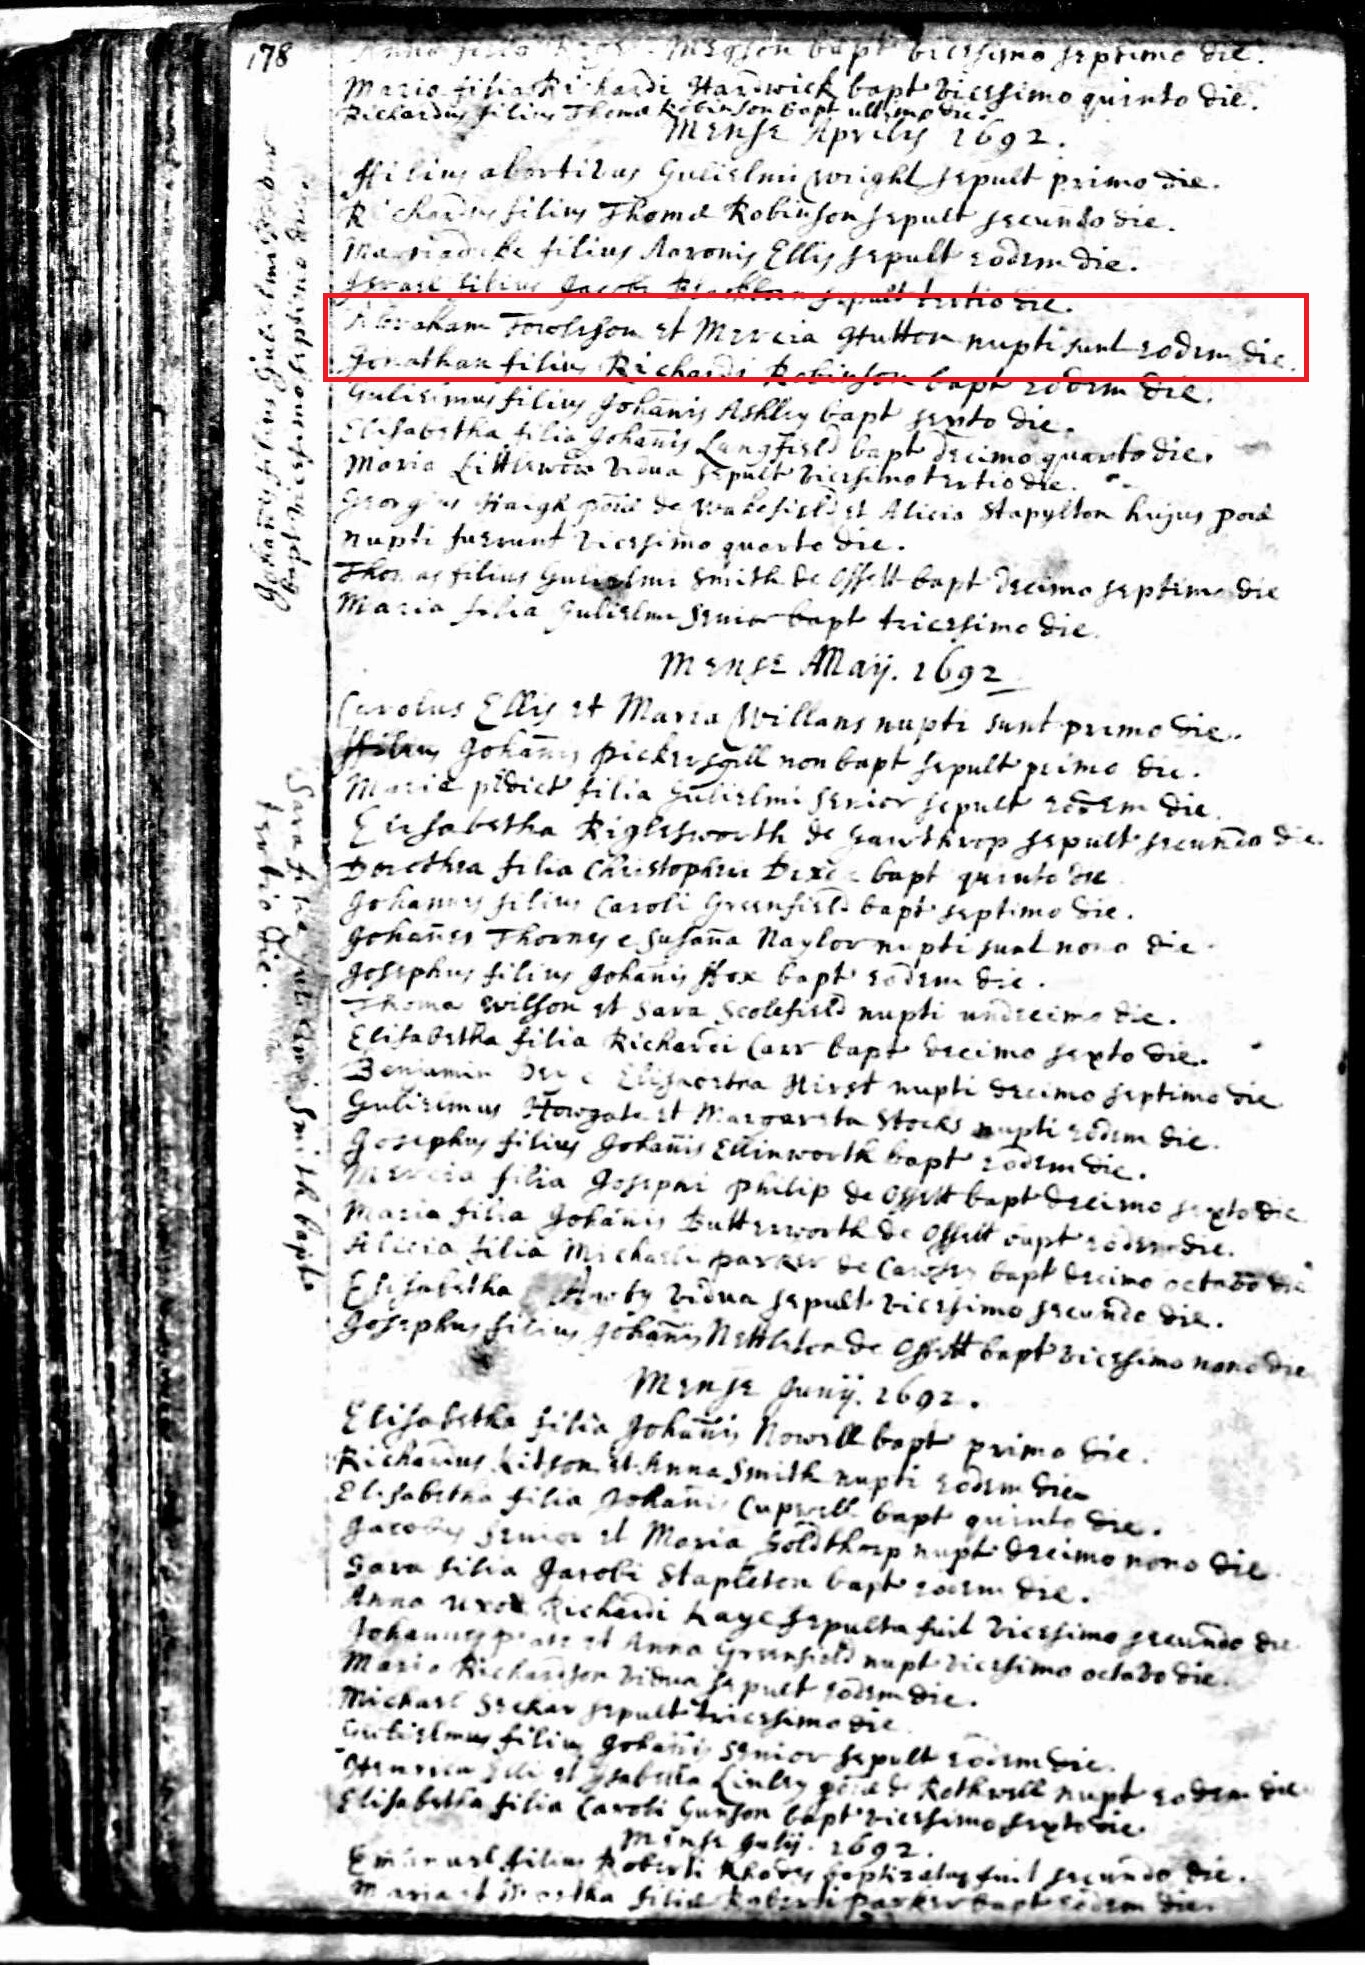 178
Anna filia Roger Megson bapt vicesimo septimo die.
Maria filia Richardi Hardwick bapt vicesimo quinto die.
Richardus filius Thomæ Robinson bapt ultimo die.
Mense Aprilis 1692.
Filius abortivus Gulielmi Wright sepult primo die.
Richardus filius Thomæ Robinson sepult secundo die.
Marmaduke filius Aaronis Ellis sepult eodem die.
Israel filius Jacobi sepult tertio die.
Abraham Towlson et Mercia Hutton nupti sunt eodem die.
Jonathan filius Richardi Robinson bapt eodem die.
Gulielmus filius Johanis Ashley bapt sexto die.
Elisabetha filia Johanis Langfield bapt decimo quarto die.
Maria Littlewood vidua sepult vicesimo tertio die.
Georgius Haigh de Wakefield et Alicia Stapylton hujus
nupti fuerunt vicesimo quarto die.
Thomas filius Gulielmi Smith de Ossett bapt decimo septimo die
Maria filia Gulielmi Senior bapt tricesimo die.
Johanes filius Gulielmi
bapt vicesimo septimo die
Mense Maij. 1692
Carolus Ellis et Maria Willans nupti sunt primo die.
Filius Johanis Pickersgill non bapt sepult primo die.
Maria pdict filia Gulielmi Senior sepult eodem die.
Elisabetha Riglesworth de Gawthrop sepult secundo die.
Dorothea filia Christopheri bapt quinto die
Johannes filius Caroli Greenfield bapt septimo die.
Johanes Thornes e Susana Naylor nupti sunt nono die.
Josephus filius Johanis Fox bapt eodem die.
Thoma Wilson et Sara Scolefield nupti undecimo die.
Elisabetha filia Richardi Carr bapt decimo sexto die.
Benjamin Elisabetha Hirst nupti decimo septimo die
Gulielmus Howgate et Margareta Stocks nupti eodem die.
Josephus filius Johanis Ellinworth bapt eodem die.
Mercia filia Josephi Philip de Ossett bapt decimo sexto die
Maria filia Johanis Butterworth de Ossett bapt eodem die.
Alicia filia Michaeli Parker de bapt decimo octavo die
Elisabetha vidua sepult vicesimo secundo die.
Josephus filius Johanis Nettleton de Ossett bapt vicesimo nono die
Sara filia Smith bapt
tertio die.
Mense Junij. 1692.
Elisabetha filia Johanis Nowell bapt primo die.
Richardus Kitson et Anna Smith nupti eodem die
Elisabetha filia Johanis bapt quinto die.
Jacobus Senior et Maria Goldthorp nupt decimo nono die
Sara filia Jacobi Stapleton bapt eodem die.
Anna uxor Richardi Kaye sepulta fuit vicesimo secundo die
Johannes et Anna Greenfield nupt vicesimo octavo die.
Maria Richardson vidua sepult eodem die.
Michael sepult tricesimo die
Gulielmus filius Johanis Senior sepult eodem die.
Henricu et Isabella Linley de Rothwell nupt eodem die
Elisabetha filia Caroli Gunson bapt vicesimo sexto die
Mense Julij. 1692.
Emanuel filius Roberti Rhodes baptizatus fuit secundo die.
Maria et Martha filiæ Roberti Parker bapt eodem die.